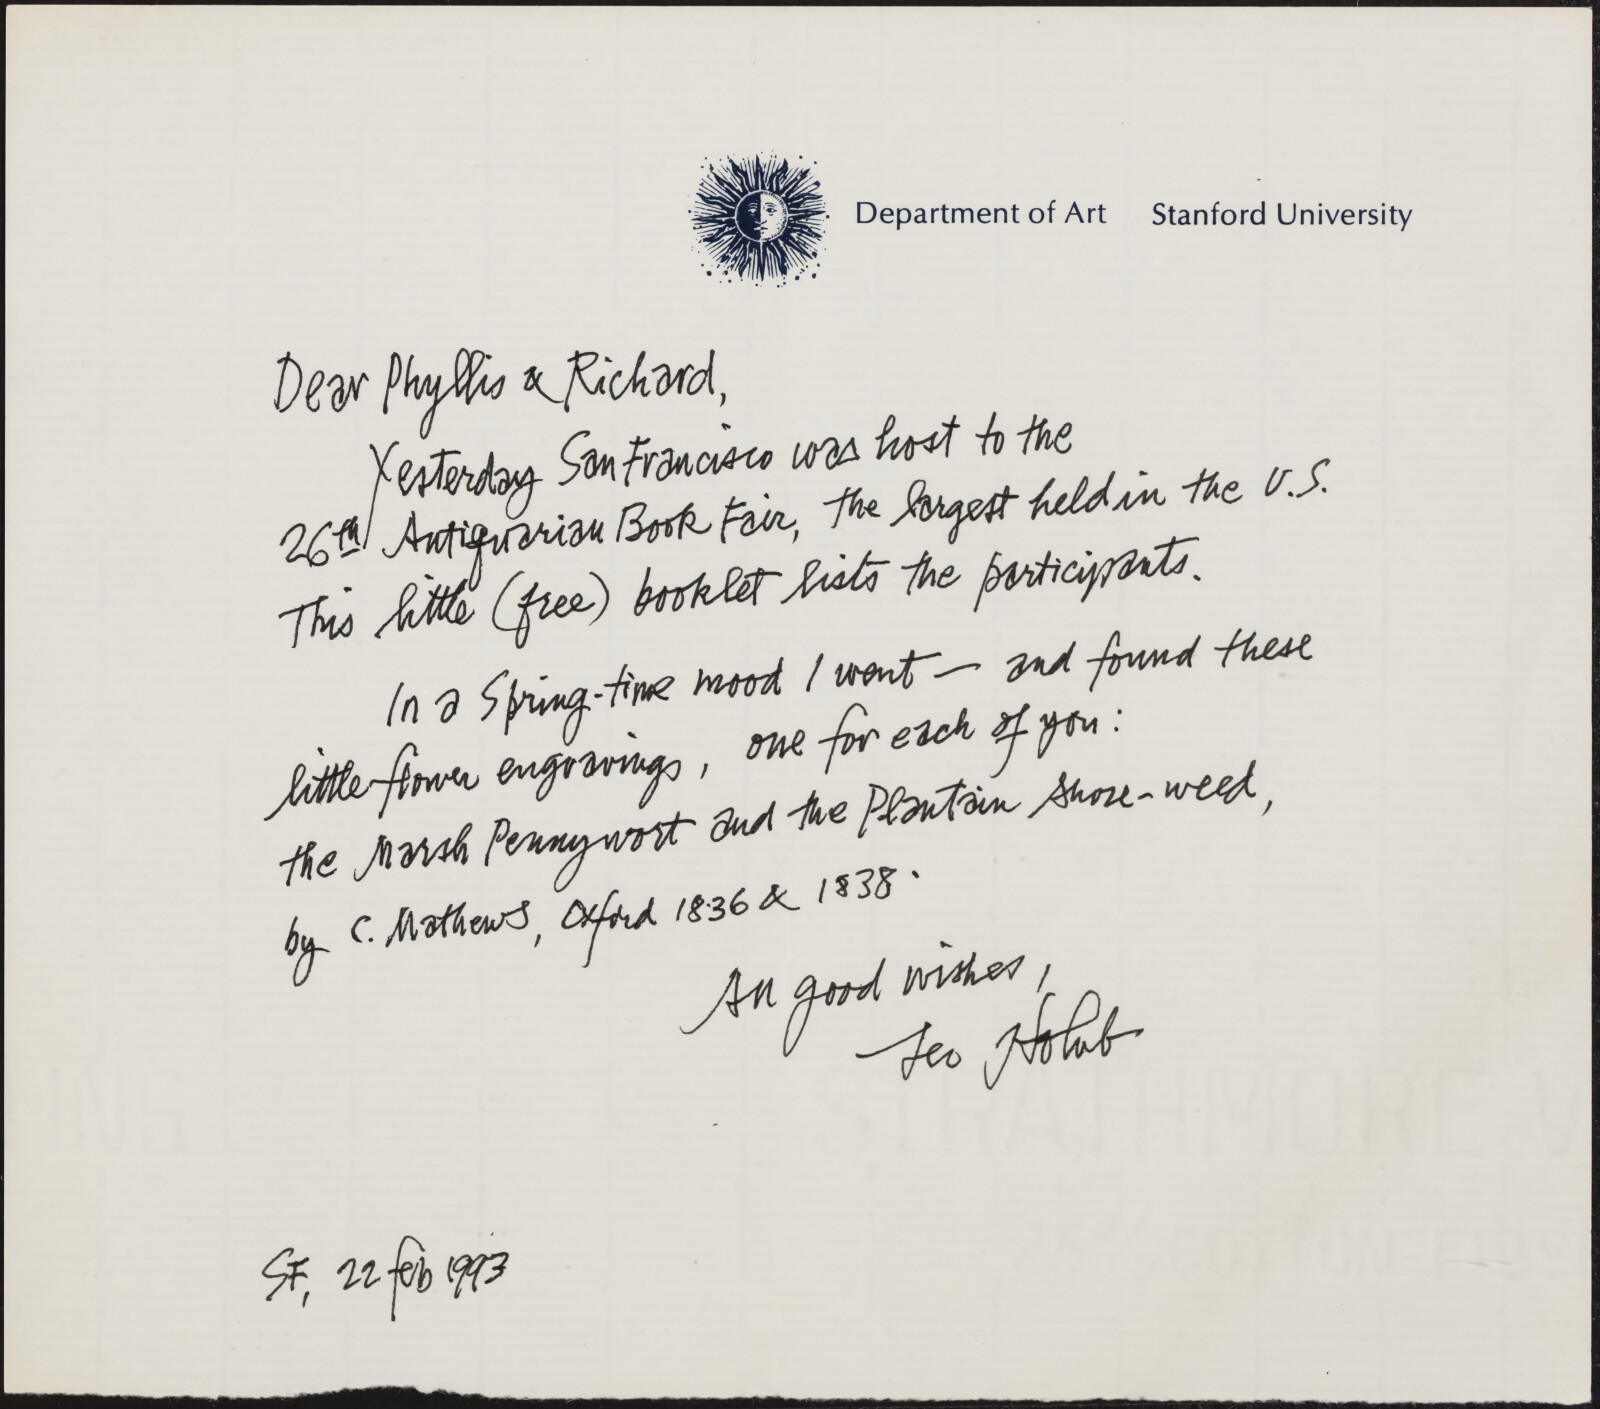 Department of Art Stanford University
Dear Phyllis & Richard,
Yesterday San Francisco was host to the
26th Antiquarian Book Fair, the largest held in the U.S.
This little (free) booklet lists the participants.
In a Spring-time mood I went — and found these
little flower engravings, one for each of you:
the Marsh Pennywort and the Plantain Shore-weed,
by C. Mathews, Oxford 1836 & 1838.
All good wishes,
Leo Holub
SF, 22 feb 1993